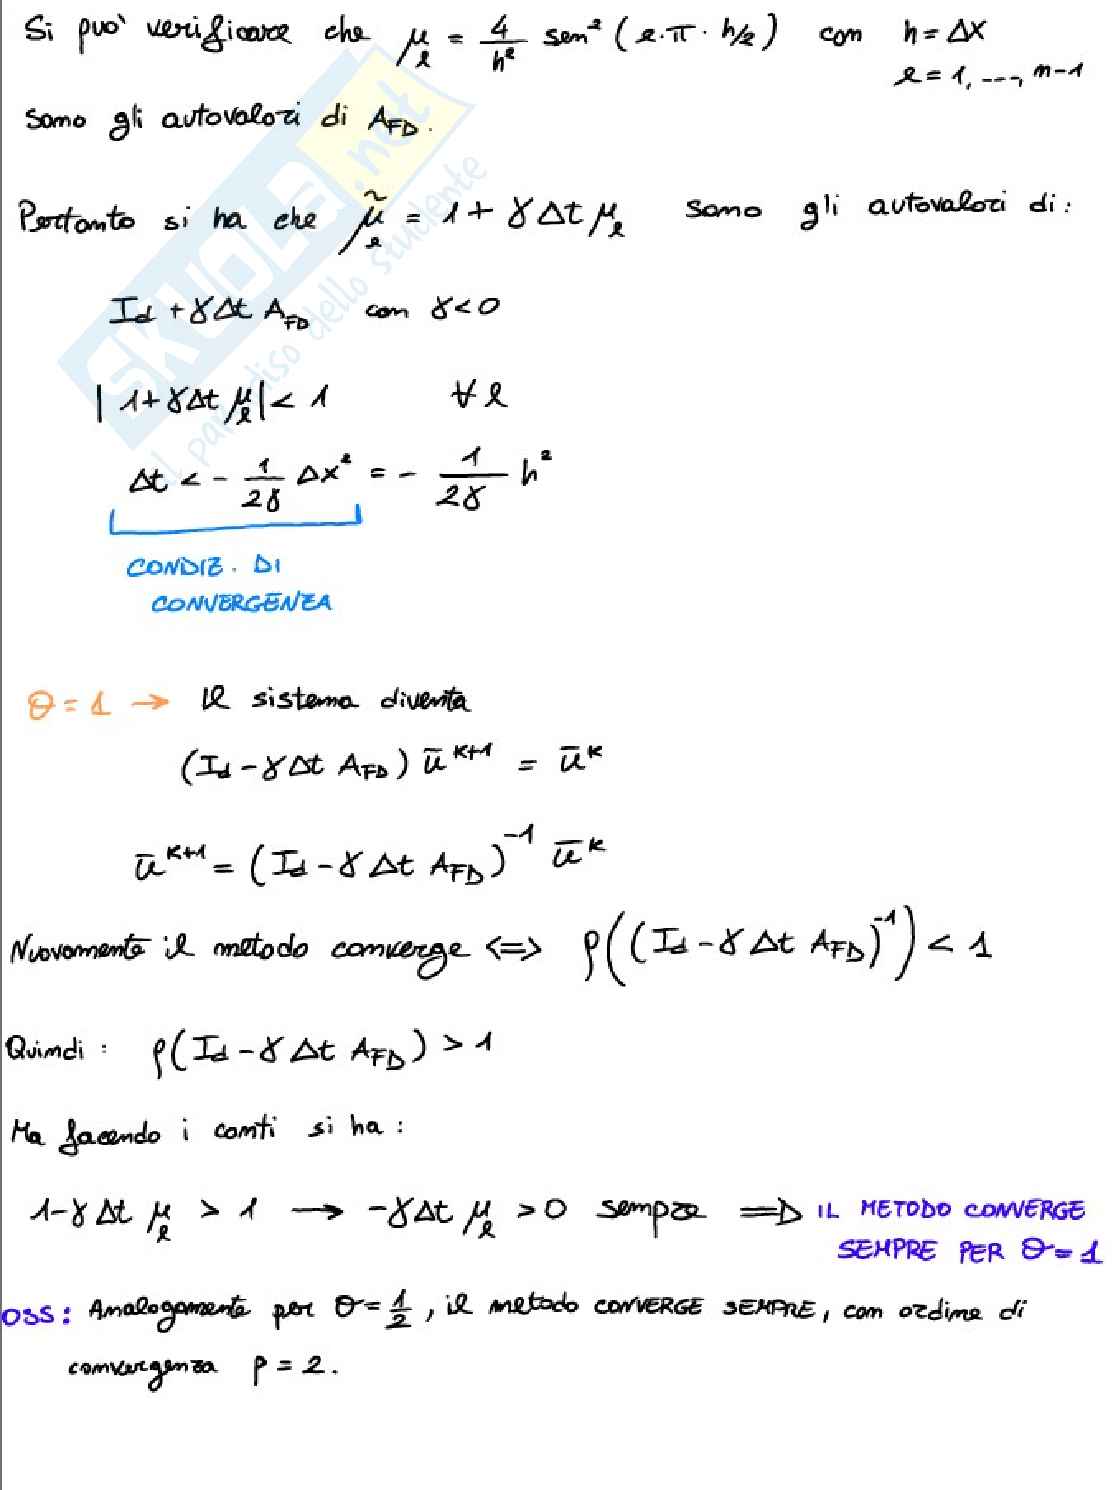 Si può verificare che μ_ℓ = 4/h² sen² (ℓ·π·h/2) con h = Δx
ℓ = 1, ---, n-1
sono gli autovalori di A_FD.
Pertanto si ha che μ̃_ℓ = 1 + γΔt μ_ℓ sono gli autovalori di:
Id + γΔt A_FD con γ<0
| 1+γΔt μ_ℓ | < 1 ∀ ℓ
Δt < - 1/2γ Δx² = - 1/2γ h²
CONDIZ. DI
CONVERGENZA
θ = 1 → Il sistema diventa
(Id - γΔt A_FD) ū^{k+1} = ū^k
ū^{k+1} = (Id - γ Δt A_FD)^{-1} ū^k
Nuovamente il metodo converge <=> ρ((Id - γ Δt A_FD)^{-1}) < 1
Quindi : ρ(Id - γ Δt A_FD) > 1
Ma facendo i conti si ha :
1-γ Δt μ_ℓ > 1 → -γΔt μ_ℓ > 0 sempre => IL METODO CONVERGE
SEMPRE PER θ = 1
OSS: Analogamente per θ = 1/2, il metodo CONVERGE SEMPRE, con ordine di
convergenza p = 2.
SKUOLA.net
il paradiso dello studente